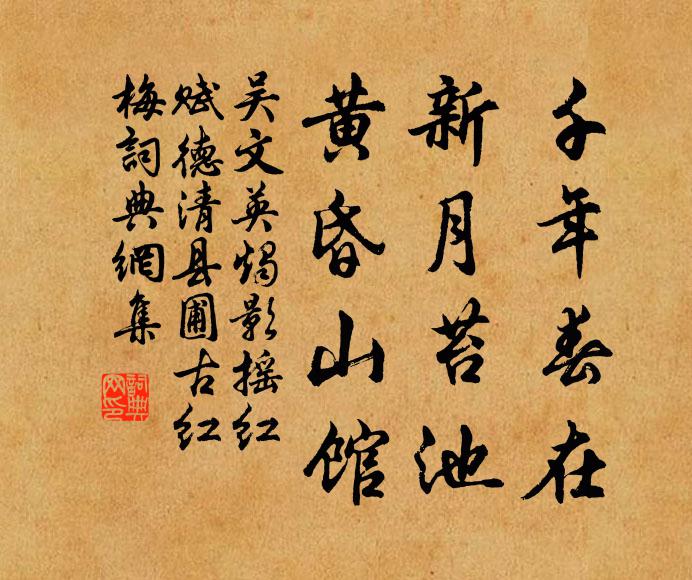 千年春在
新月苔池
黄昏山馆
吴文英烛影摇红
赋德清县圃古红
梅詞典網集
詞典
网印